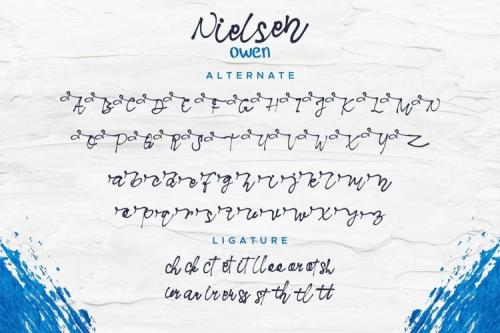 Nielsen
owen
ALTERNATE
A B C D E F G H I J K L M N
O P Q R S T U V W X Y Z
a b c d e f g h i j k l m n
o p q r s t u v w x y z
LIGATURE
ch ck ct et it ll ee or ot sh
ur an ir er ss st th tl tt